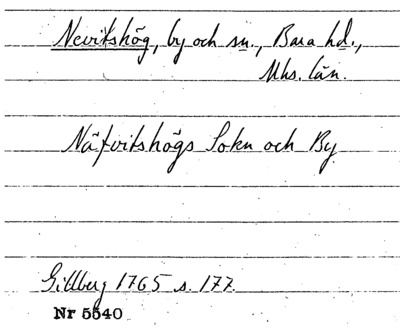 Nevitshög, by och sn., Bara hd.,
Mhs. län.
Näfvitshögs Sokn och By
Gillberg 1765 s. 177.
Nr 5540